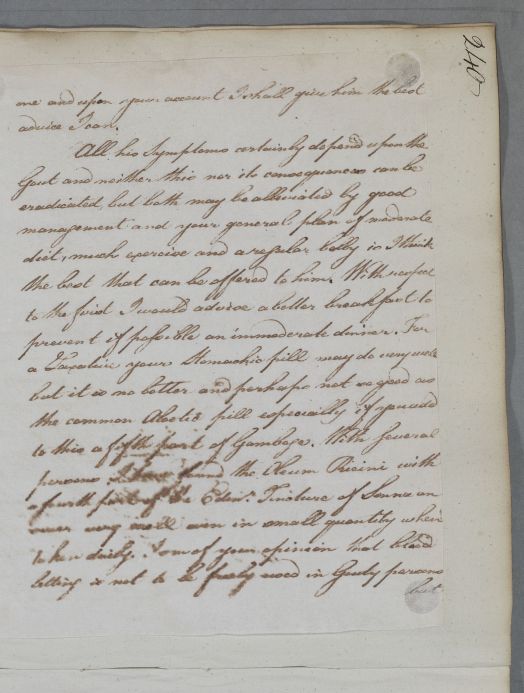 240
me and upon your account I shall give him the best
advice I can.
All his Symptoms certainly depend upon the
Gout and neither this nor its consequences can be
eradicated, but both may be alleviated by good
management and your general plan of moderate
diet, much exercise and a regular belly is I think
the best that can be offered to him. With respect
to the first I would advise a better breakfast to
prevent if possible an immoderate dinner. For
a Laxative your Stomachic pill may do very well
but it is no better and perhaps not so good as
the common Aloetic pill especially if you add
to this a fifth part of Gamboge. With several
persons I have found the Oleum Ricini with
a fourth part of the Edinr. Tincture of Senna an
swer very well even in small quantity when
taken daily. I am of your opinion that blood
letting is not to be freely used in Gouty persons
but